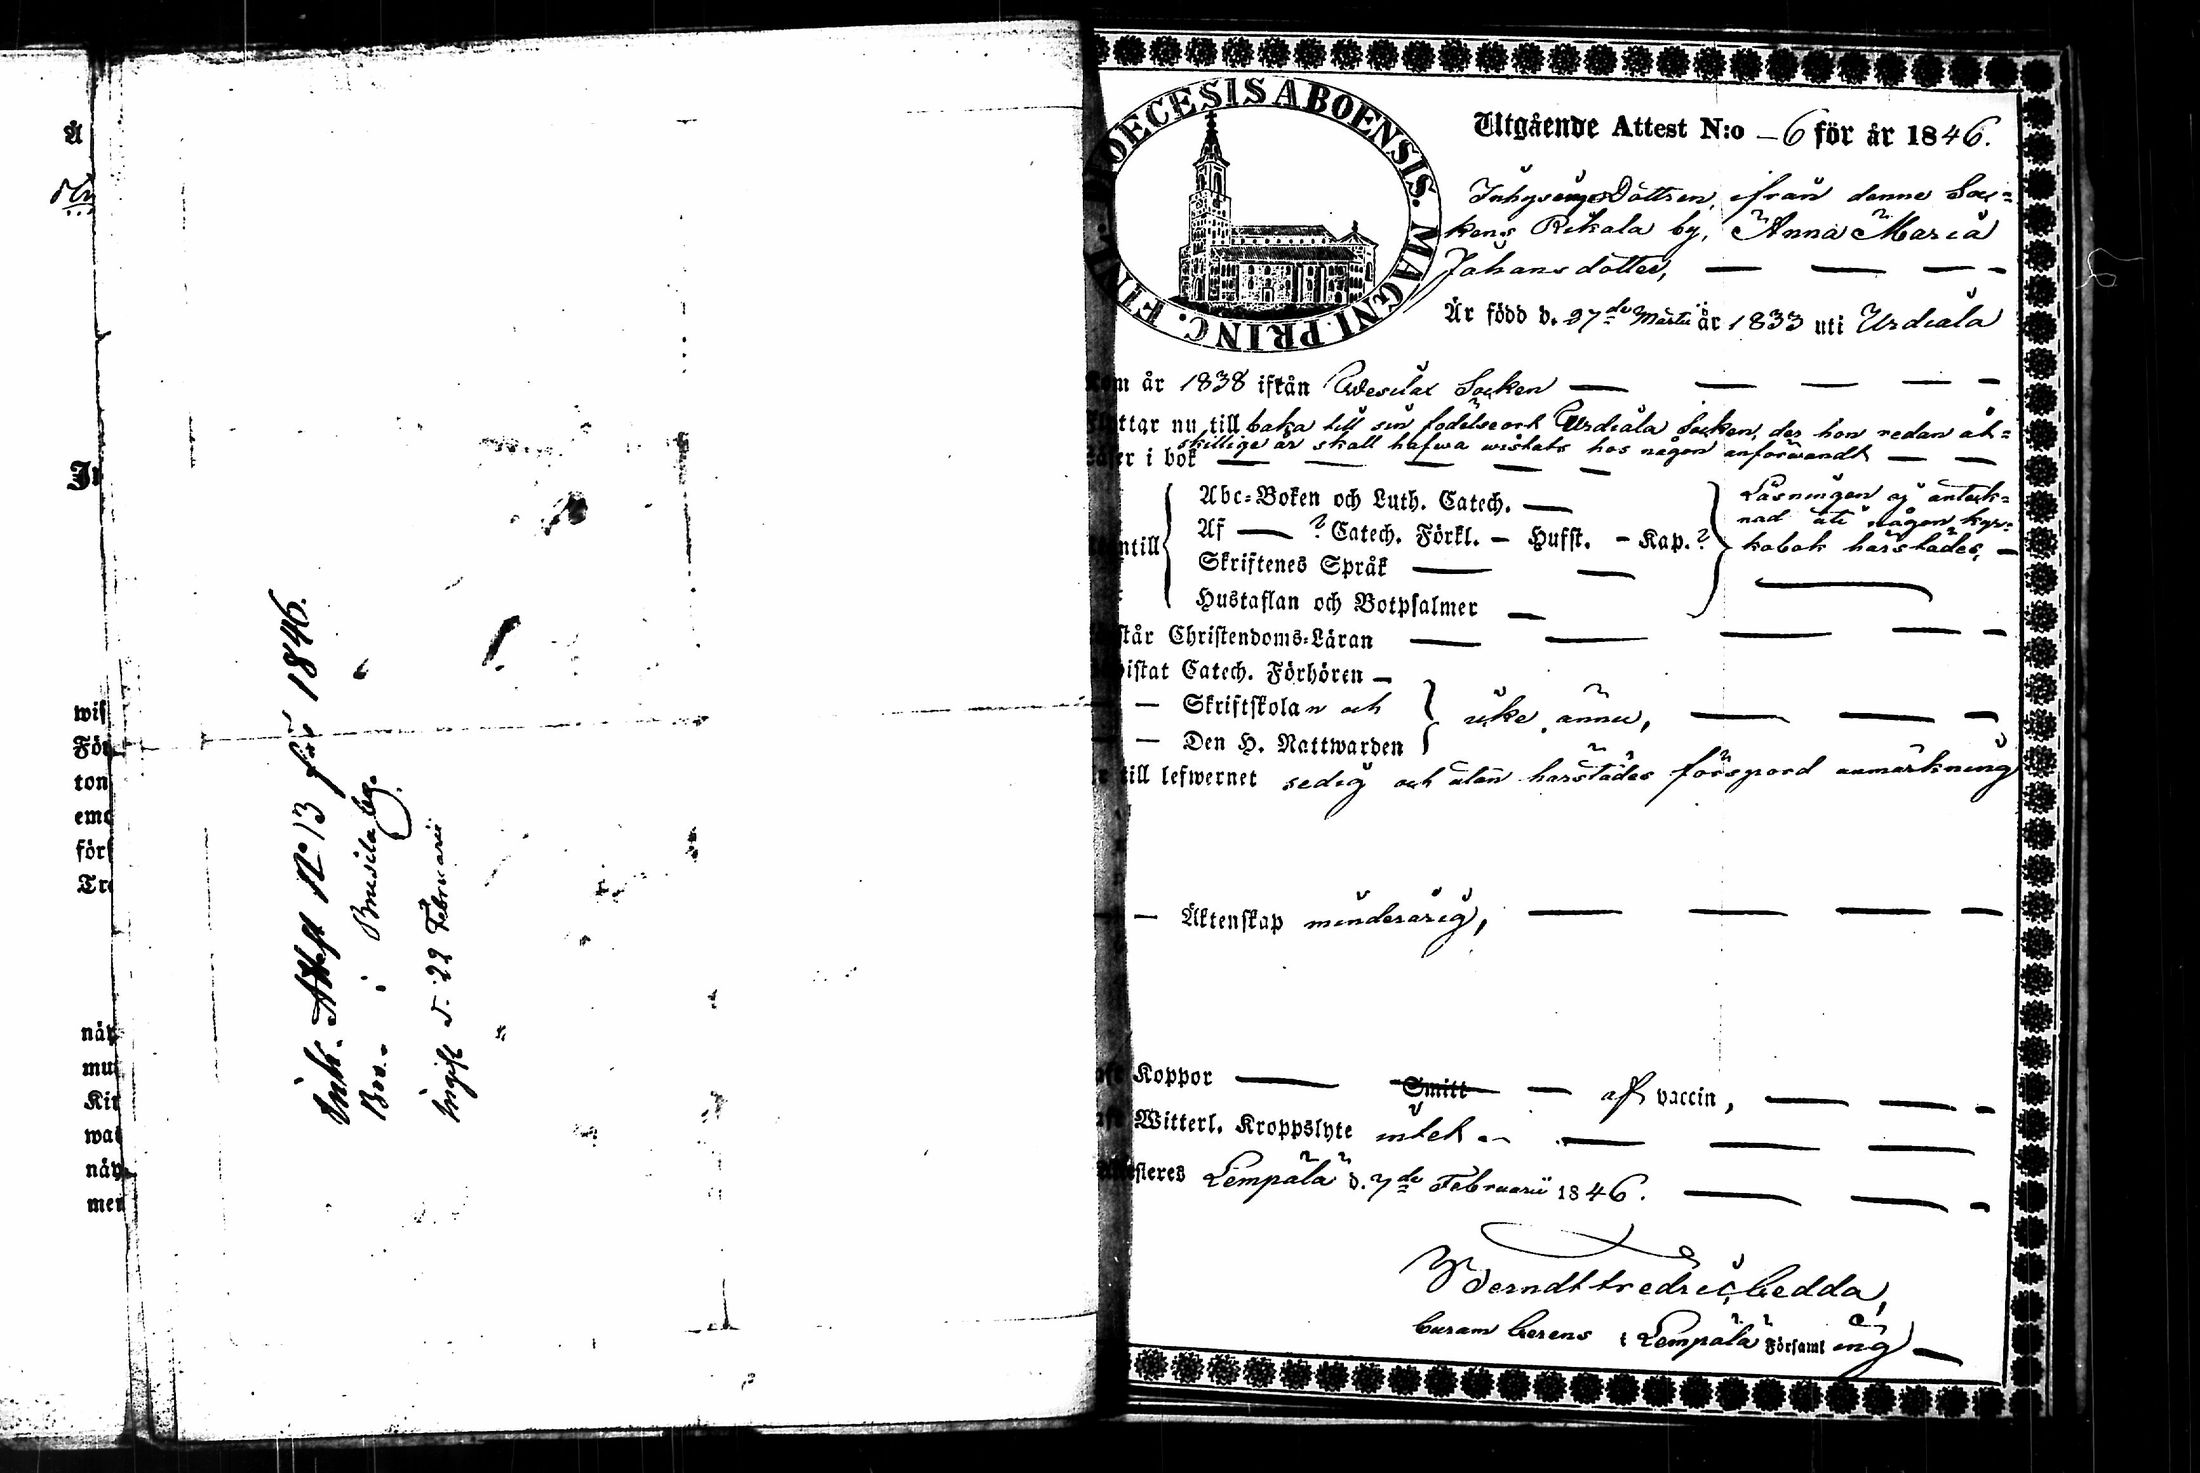 Å
In
wis
För
ton
emo
förs
Tre
näp
mu
Kir
wat
näp
mer
Ink. Attest No 13 för 1846.
Bos. i Brusila by.
Ingift d. 22 Februarii
DIOECESIS ABOENSIS. MAGNI PRINC. FINL.
Utgående Attest N:o 6 för år 1846.
Inhyses Dottren, ifrån denne Soc=
kens Rikala by, Anna Maria
Johansdotter,
Är född d. 27de Martii år 1833 uti Urdiala
Kom år 1838 ifrån Wesilax Socken
Flyttar nu till baka till sin födelseort Urdiala Socken, der hon redan åt=
skillige år skall hafwa wistats hos någon anförwandt
Läser i bok
Abc=Boken och Luth. Catech.
Af ? Catech. Förkl. Hufst. Kap.?
Skriftenes Språk
Hustaflan och Botpsalmer
Läsningen ej anteck=
nad uti någon kyr=
kobok härstädes,
står Christendoms=Läran
bistat Catech. Förhören
Skriftskolan och
Den H. Nattwarden
icke ännu,
till lefwernet sedig och utan härstädes förspord anmärkning
Äktenskap minderårig,
Koppor Smitt af vaccin,
Witterl. Kroppslyte intet
Attesteres Lempälä d. 7de Februarii 1846.
Berndt Fredric Cedda,
Curam Gerens i Lempälä Församl ing